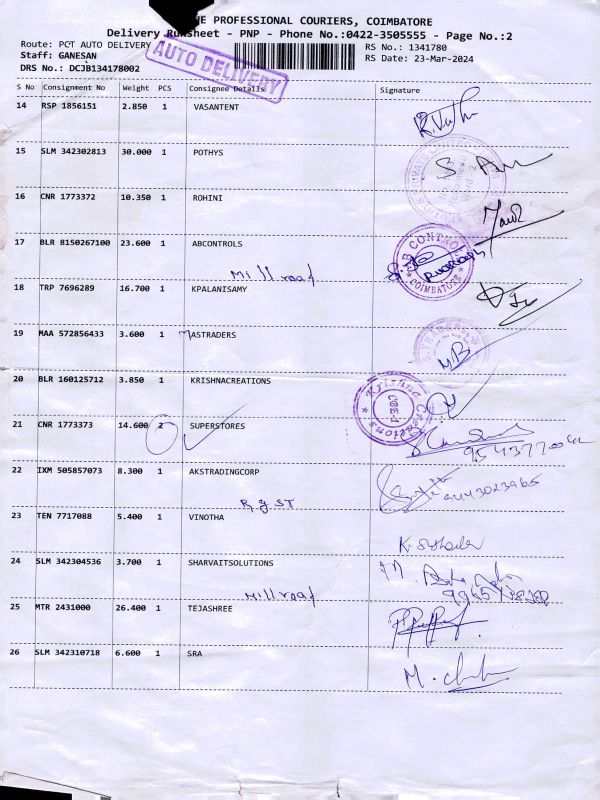 HE PROFESSIONAL COURIERS, COIMBATORE
Delivery Runsheet - PNP - Phone No.:0422-3505555 - Page No.:2
Route: PCT AUTO DELIVERY
RS No.: 1341780
Staff: GANESAN
RS Date: 23-Mar-2024
DRS No.: DCJB134178002
AUTO DELIVERY
S No Consignment No Weight PCS Consignee Details Signature
14 RSP 1856151 2.850 1 VASANTENT
15 SLM 342302813 30.000 1 POTHYS
16 CNR 1773372 10.350 1 ROHINI
17 BLR 8150267100 23.600 1 ABCONTROLS
AB CONTROL
COIMBATORE
Mill road
18 TRP 7696289 16.700 1 KPALANISAMY
19 MAA 572856433 3.600 1 MASTRADERS
20 BLR 160125712 3.850 1 KRISHNACREATIONS
Krishna Creations
CBE-1
21 CNR 1773373 14.600 2 SUPERSTORES
22 IXM 505857073 8.300 1 AKSTRADINGCORP
9443023965
R.G.ST
23 TEN 7717088 5.400 1 VINOTHA
24 SLM 342304536 3.700 1 SHARVAITSOLUTIONS
Mill road
25 MTR 2431000 26.400 1 TEJASHREE
26 SLM 342310718 6.600 1 SRA